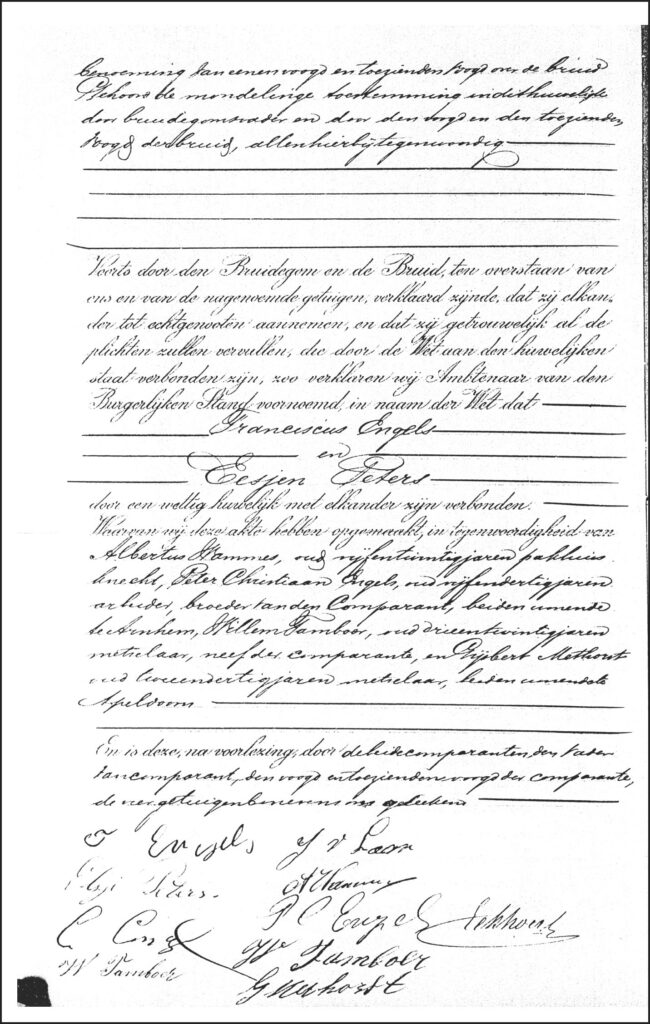 benoeming van eenen voogd en toezienden voogd over de bruid
de mondelinge toestemming in dit huwelijk
door bruidegoms vader en door den voogd en den toezienden
voogd der bruid, allen hierbij tegenwoordig
Voorts door den Bruidegom en de Bruid, ten overstaan van
ons en van de nagenoemde getuigen, verklaard zijnde, dat zij elkan-
der tot echtgenooten aannemen, en dat zij getrouwelijk al de
plichten zullen vervullen, die door de Wet aan den huwelijken
staat verbonden zijn, zoo verklaren wij Ambtenaar van den
Burgerlijken Stand voornoemd, in naam der Wet dat
Franciscus Engels
en
Eesjen Peters
door een wettig huwelijk met elkander zijn verbonden.
Waarvan wij deze akte hebben opgemaakt, in tegenwoordigheid van
Albertus Hammes, oud vijfentwintig jaren pakhuis
knecht, Peter Christiaan Engels, oud vijfendertig jaren
arbeider, broeder van den Comparant, beiden wonende
te Arnhem, Willem Tamboer, oud drieentwintig jaren
metselaar, neef der comparante, en Gijsbert Methorst
oud tweeendertig jaren metselaar, beiden wonende te
Apeldoorn
En is deze, na voorlezing, door de beide comparanten den vader
van comparant, den voogd en toezienden voogd der comparante,
de vier getuigen benevens ons geteekend
F Engels J v Laar
Peters. A Hammes
P C Engels
W Tamboer W Tamboer
G Methorst